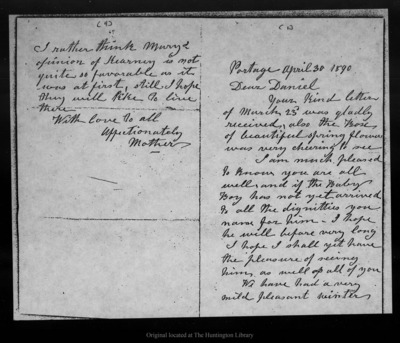 (4)
I rather think Mary's
opinion of Kearney is not
quite so favorable as it
was at first, still I hope
they will like to live
there
With love to all
Affectionately
Mother
(1)
Portage April 30 1890
Dear Daniel
Your kind letter
of March 25 was gladly
received, also the Box
of beautiful spring flowers
was very cheering to see
I am much pleased
to know you are all
well, and if the Baby
Boy has not yet arrived
to all the dignities you
name for him. I hope
he will before very long
I hope I shall yet have
the pleasure of seeing
him, as well as all of you
We have had a very
mild pleasant winter,
Original located at The Huntington Library